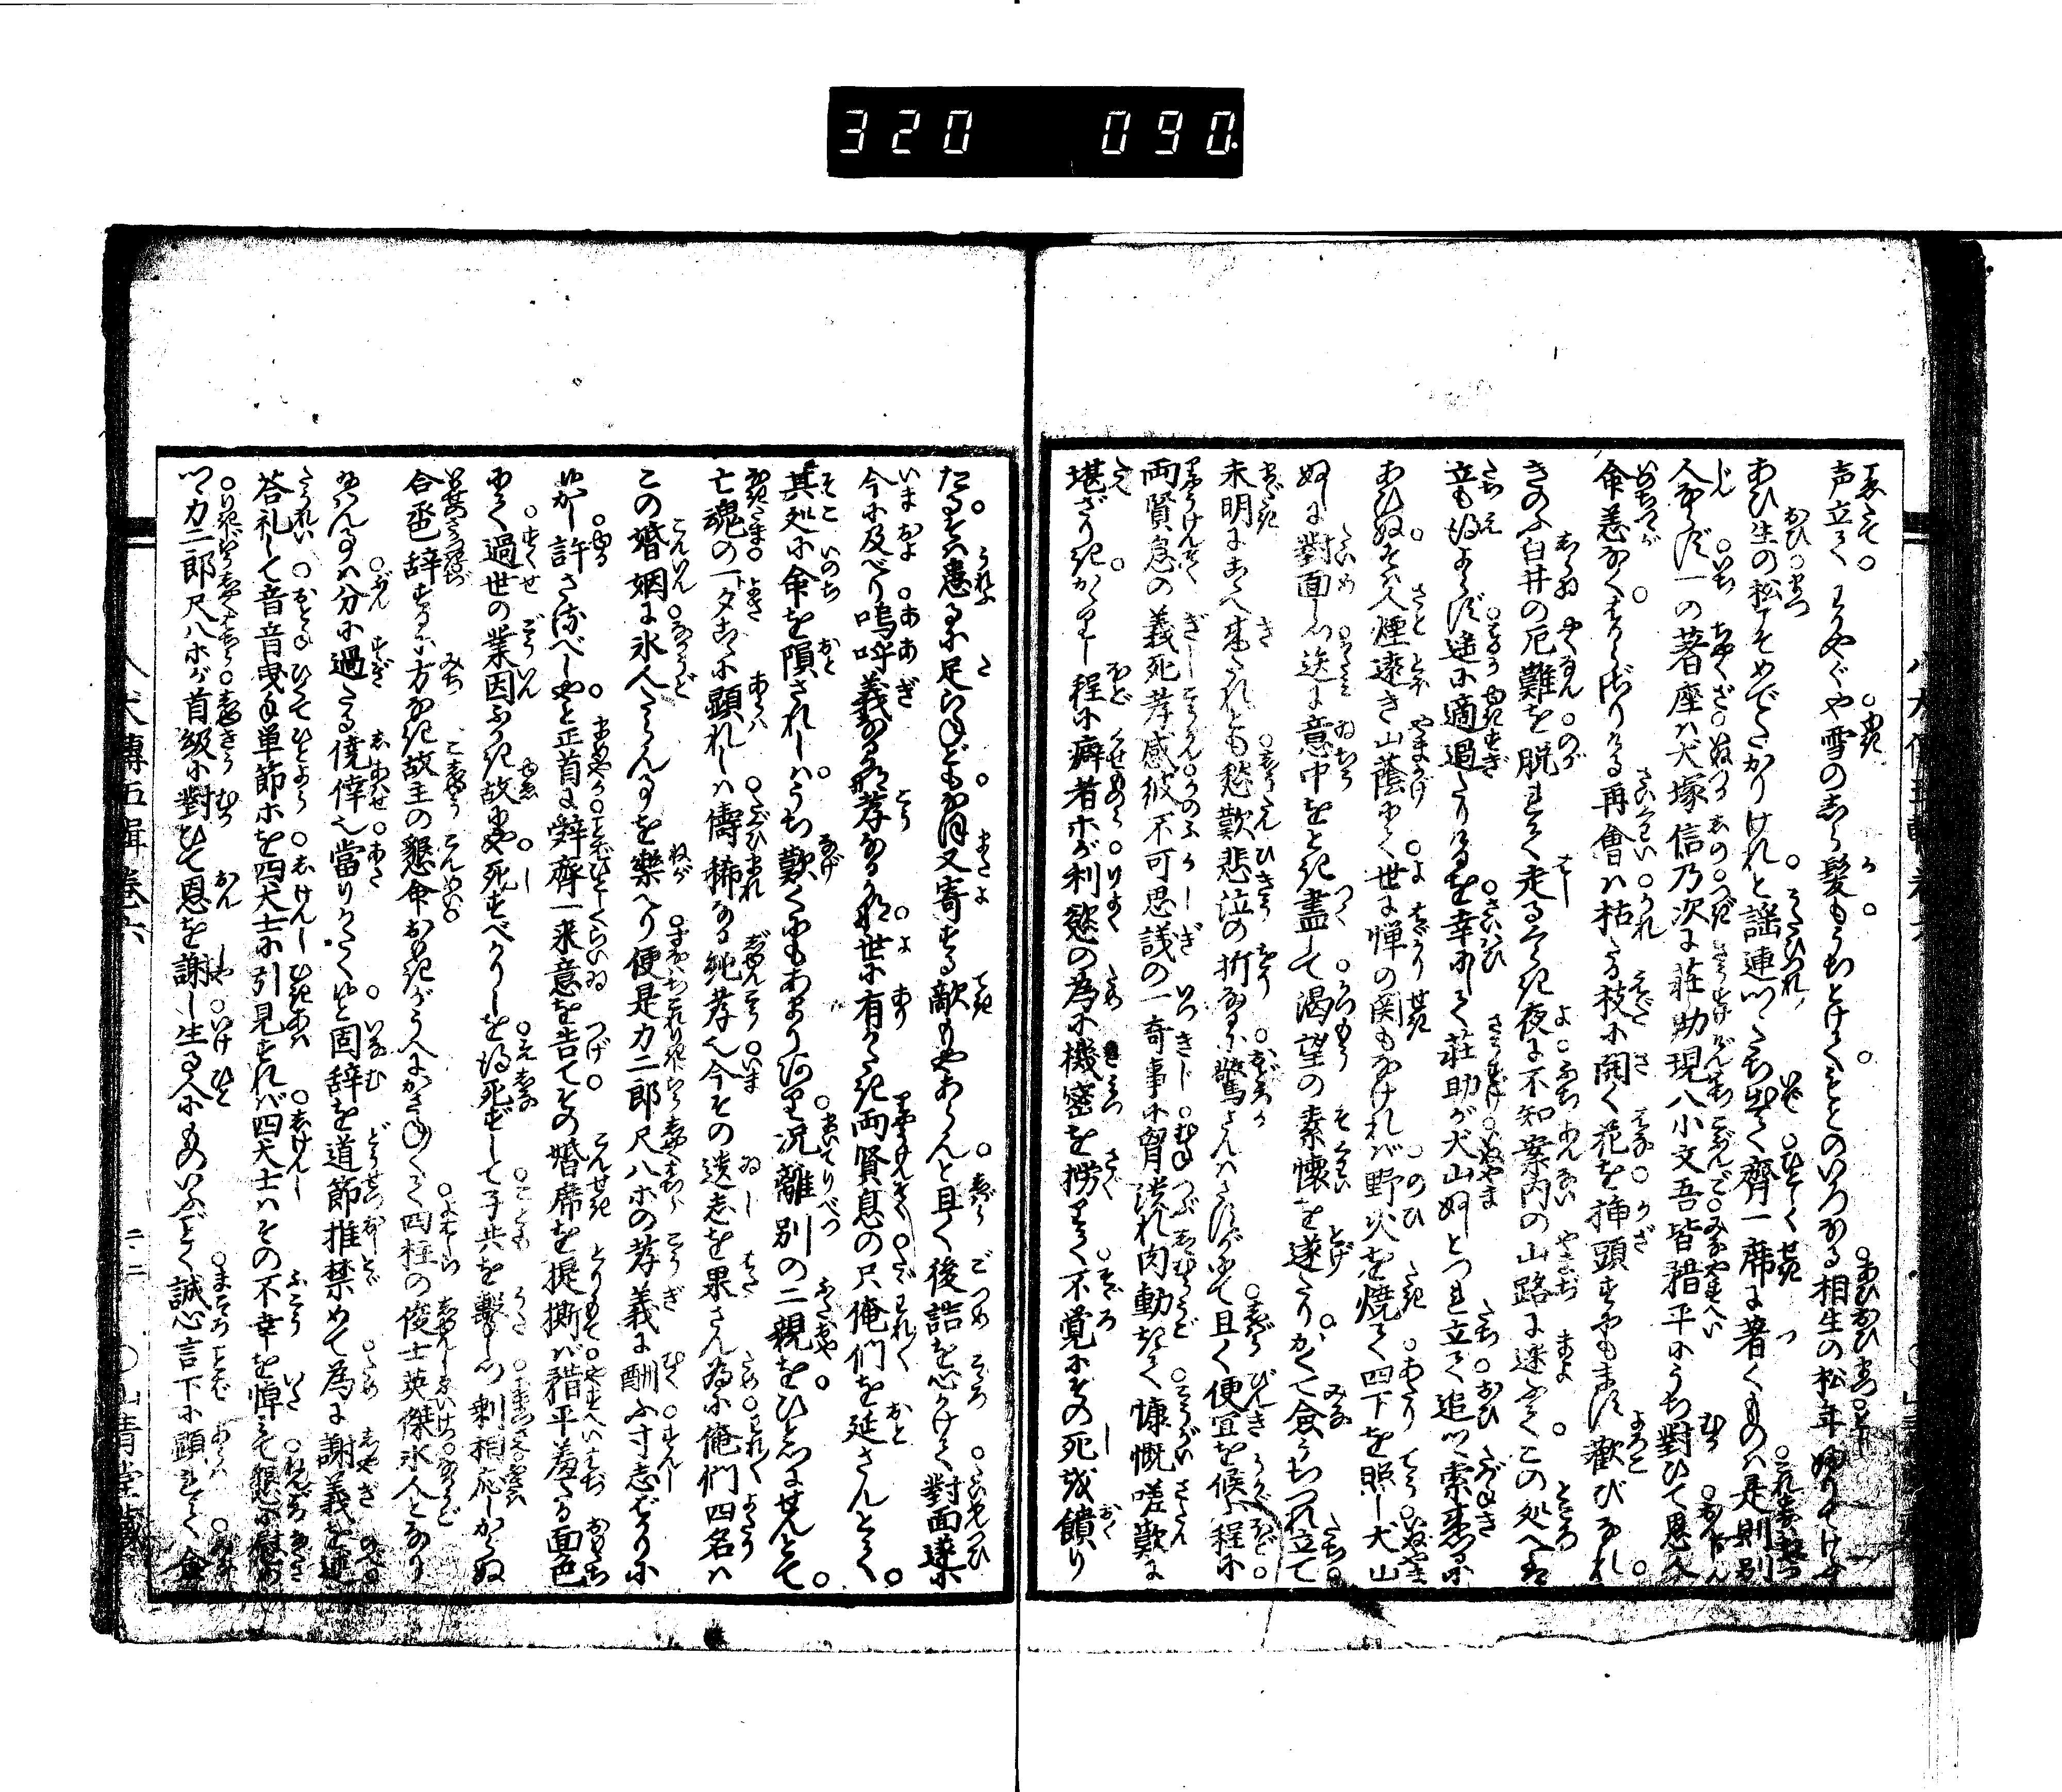 320 090
声立てわかやぐや雪のしら髪もうちとけてもとのいろなる相生の松年ふりてけふ
あひ生の松こそめでたかりけれと謡連つゝ立出て齊一席に著くものは是則別
人ならず一の著座は犬塚信乃次に荘助現八小文吾皆矠平にうち對ひて恩人
命恙なくはからざりける再會は枯たる枝に開く花を挿頭すにもます歓びなれ
きのふ白井の厄難を脱れて走るとき夜に不知案内の山路に迷ふてこの処へは
立もよらず途に適過たりけるを幸にして荘助が犬山ぬしとつれ立て追つゝ索来るに
あひぬそは人煙遠き山蔭にて世に憚の関もなければ野火を焼て四下を照し犬山
ぬしに對面し迭に意中をとき盡して渇望の素懐を遂たりかくて僉うちつれ立て
未明にこゝへ来つれども愁歎悲泣の折なるに驚さんはさすがにて且く便宜を候ふ程に
両賢息の義死孝感彼不可思議の一奇事に胃潰れ肉動きて慷慨嗟歎に
堪ざりきかくりし程に癖者ホが利慾の為に機密を撈りて不覚にその死を饋り
たるそは患るに足らねどもなほ又寄する敵もやあらんと且く後詰を心がけて對面遂に
今に及べり嗚呼義なるかな孝なるかな世に有がたき両賢息の只俺們を延さんとて
其処に命を隕されしはうち歎くにもあまりあり况離別の二親をひとつにせんとて
亡魂の一トタこゝに顕れしは儔稀なる純孝也今その遺志を果さん為に俺們四名は
この婚姻に氷人たらんことを樂へり便是力二郎尺八ホの孝義に酬ふ寸志ばかりに
ゆかし許さるべしやと正首に辭齊一来意を告てその婚席を提撕ば矠平羞たる面色
にて過世の業因ふかき故にや死すべかりしを得死ずして子共を敷し剰相応しからぬ
合巹辞するに方なき故主の懇命おもきがうへにかさねて四柱の俊士英傑氷人となり
給はんことは分に過たる僥倖也當りがたく候と固辞を道節推禁めて為に謝義を述
答礼して音音曳手単節ホを四犬士に引見すれば四犬士はその不幸を悼みて懇に慰め
つゝ力二郎尺八ホが首級に對ひて恩を謝し生る人にものいふごとく誠心言下に顕れて僉
八犬傳五輯巻六
二十二
○山青堂藏